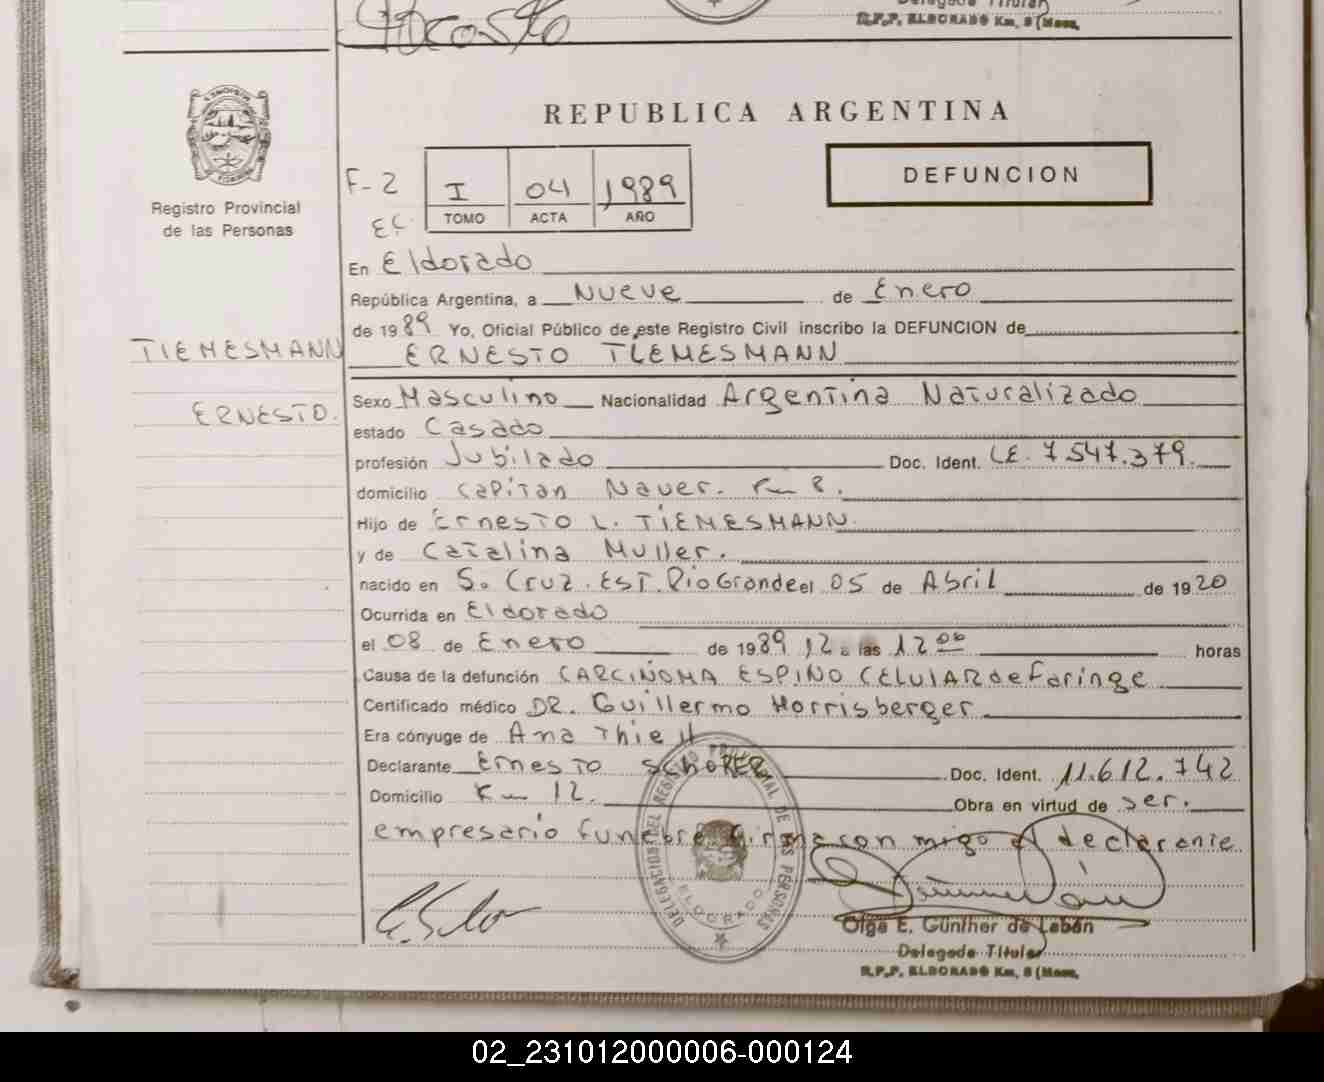 Delegada Titular
R.P.P. ELDORADO Km. 8 (Mnes.
REPUBLICA ARGENTINA
DEFUNCION
F-2
I 04 1989
TOMO ACTA AÑO
Registro Provincial
de las Personas
TIEMESMANN
ERNESTO.
En Eldorado
República Argentina, a Nueve de Enero
de 1989 Yo, Oficial Público de este Registro Civil inscribo la DEFUNCION de
ERNESTO TIEMESMANN
Sexo Masculino Nacionalidad Argentina Naturalizado
estado Casado
profesión Jubilado Doc. Ident. LE. 7.547.379.
domicilio Capitan Nauer. Km 8.
Hijo de Ernesto L. TIEMESMANN.
y de Catalina Muller.
nacido en S. Cruz. EST. Rio Grande el 05 de Abril de 1920
Ocurrida en Eldorado
el 08 de Enero de 1989 a las 12 00 horas
Causa de la defunción CARCINOMA ESPINO CELULAR de Faringe
Certificado médico DR. Guillermo Horrisberger
Era cónyuge de Ana Thiell
Declarante Ernesto Doc. Ident. 11.612.742
Domicilio Km 12. Obra en virtud de ser.
empresario funebre firma con migo el declarante
DELEGACION DEL REGISTRO PROVINCIAL DE LAS PERSONAS
ELDORADO
Olga E. Günther de Labán
Delegada Titular
R.P.P. ELDORADO Km. 8 (Mnes.
02_231012000006-000124